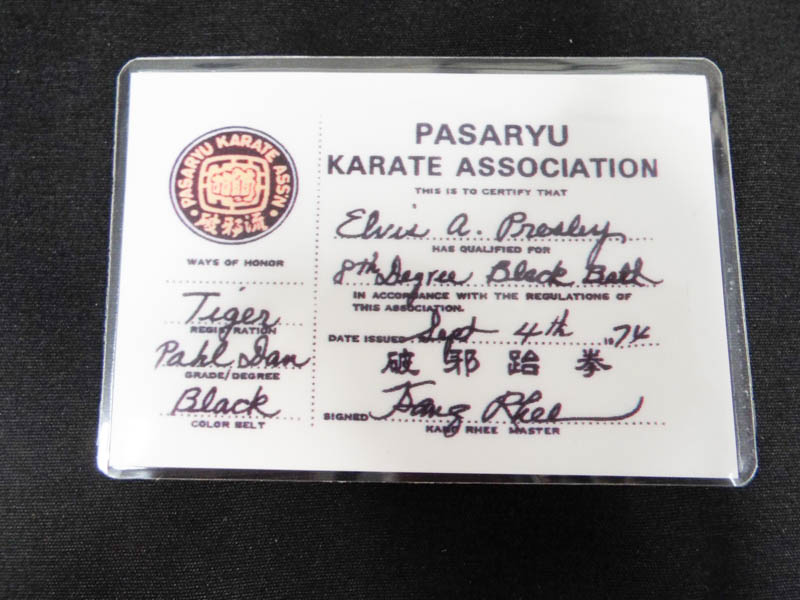 PASARYU KARATE ASS'N.
破邪流
WAYS OF HONOR
Tiger
REGISTRATION
Pahl Dan
GRADE/DEGREE
Black
COLOR BELT
PASARYU
KARATE ASSOCIATION
THIS IS TO CERTIFY THAT
Elvis A. Presley
HAS QUALIFIED FOR
8th Degree Black Belt
IN ACCORDANCE WITH THE REGULATIONS OF
THIS ASSOCIATION.
DATE ISSUED Sept 4th 1974
破邪跆拳
SIGNED Kang Rhee
KANG RHEE MASTER